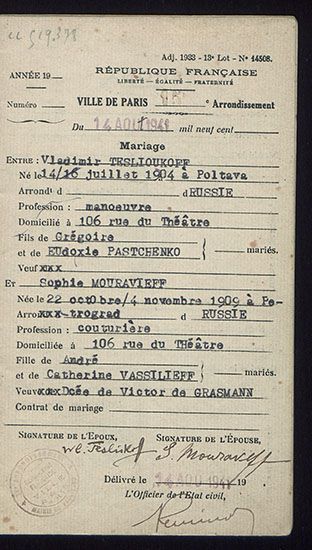 Adj. 1933 - 13e Lot - No 14508.
ANNÉE 19
RÉPUBLIQUE FRANÇAISE
LIBERTÉ — ÉGALITÉ — FRATERNITÉ
Numéro
VILLE DE PARIS e Arrondissement
Du 14 AOU 1941 mil neuf cent
Mariage
ENTRE : Vladimir TESLIOUKOFF
Né le 14/16 juillet 1904 à Poltava
Arrond d d RUSSIE
Profession : manoeuvre
Domicilié à 106 rue du Théâtre
Fils de Grégoire
et de EUdoxie PASTCHENKO mariés.
Veuf xxx
ET Sophie MOURAVIEFF
Née le 22 octobre/4 novembre 1909 à Pe-
Arro xxx-trograd d RUSSIE
Profession : couturière
Domiciliée à 106 rue du THéâtre
Fille de André
et de Catherine VASSILIEFF mariés.
Veuve xxx Dcée de Victor de GRASMANN
Contrat de mariage
SIGNATURE DE L'EPOUX, SIGNATURE DE L'ÉPOUSE,
S. Mouravieff
Délivré le 14 AOU 1941 19
L'Officier de l'Etat civil,